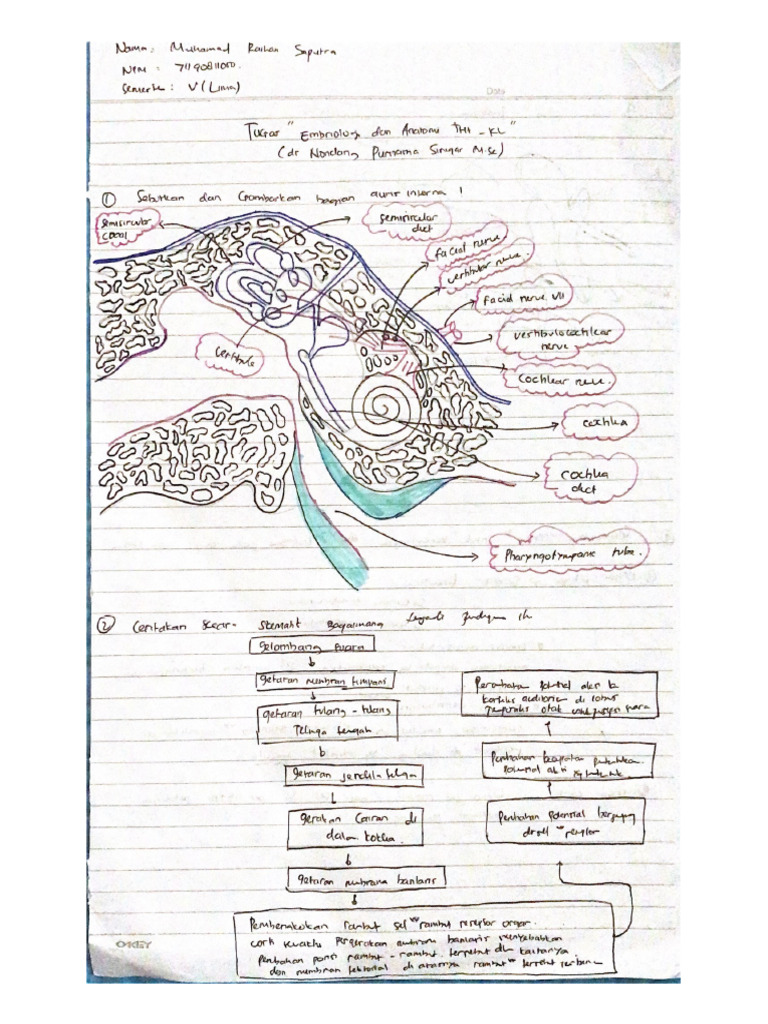 Nama : Muhamad Raihan Saputra
NPM : 71190811050.
Semester : V (Lima)
Date
Tugas "Embriologi dan Anatomi THT-KL"
(dr Nondang Purnama Siregar M.Sc)
① Sebutkan dan Gambarkan bagian auris interna !
semisircular canal
semisircular duct
facial nerve
vestibular nerve.
facial nerve VII
vestibulocochlear nerve
cochlear nerve.
cochlea
cochlea duct
Vestibule
Pharyngotympanic tube.
② Ceritakan Secara Skematik Bagaimana
Gelombang suara
getaran membran timpani
getaran tulang-tulang
Telinga tengah
getaran jendela
gerakan Cairan di
dalam koklea.
getaran membrana basilaris
Pembengkokan rambut sel" rambut reseptor organ.
corti sewaktu pergerakan membrana basilaris menyebabkan
perubahan posisi rambut-rambut tersebut
dan membran tektorial di atasnya rambut" tersebut
Perubahan potensial berjenjang
di sel" reseptor
Perubahan kecepatan pembentukan
Potensial aksi
Perambatan potensial aksi ke
korteks auditorius di lobus
Temporalis otak untuk persepsi suara
OKEY